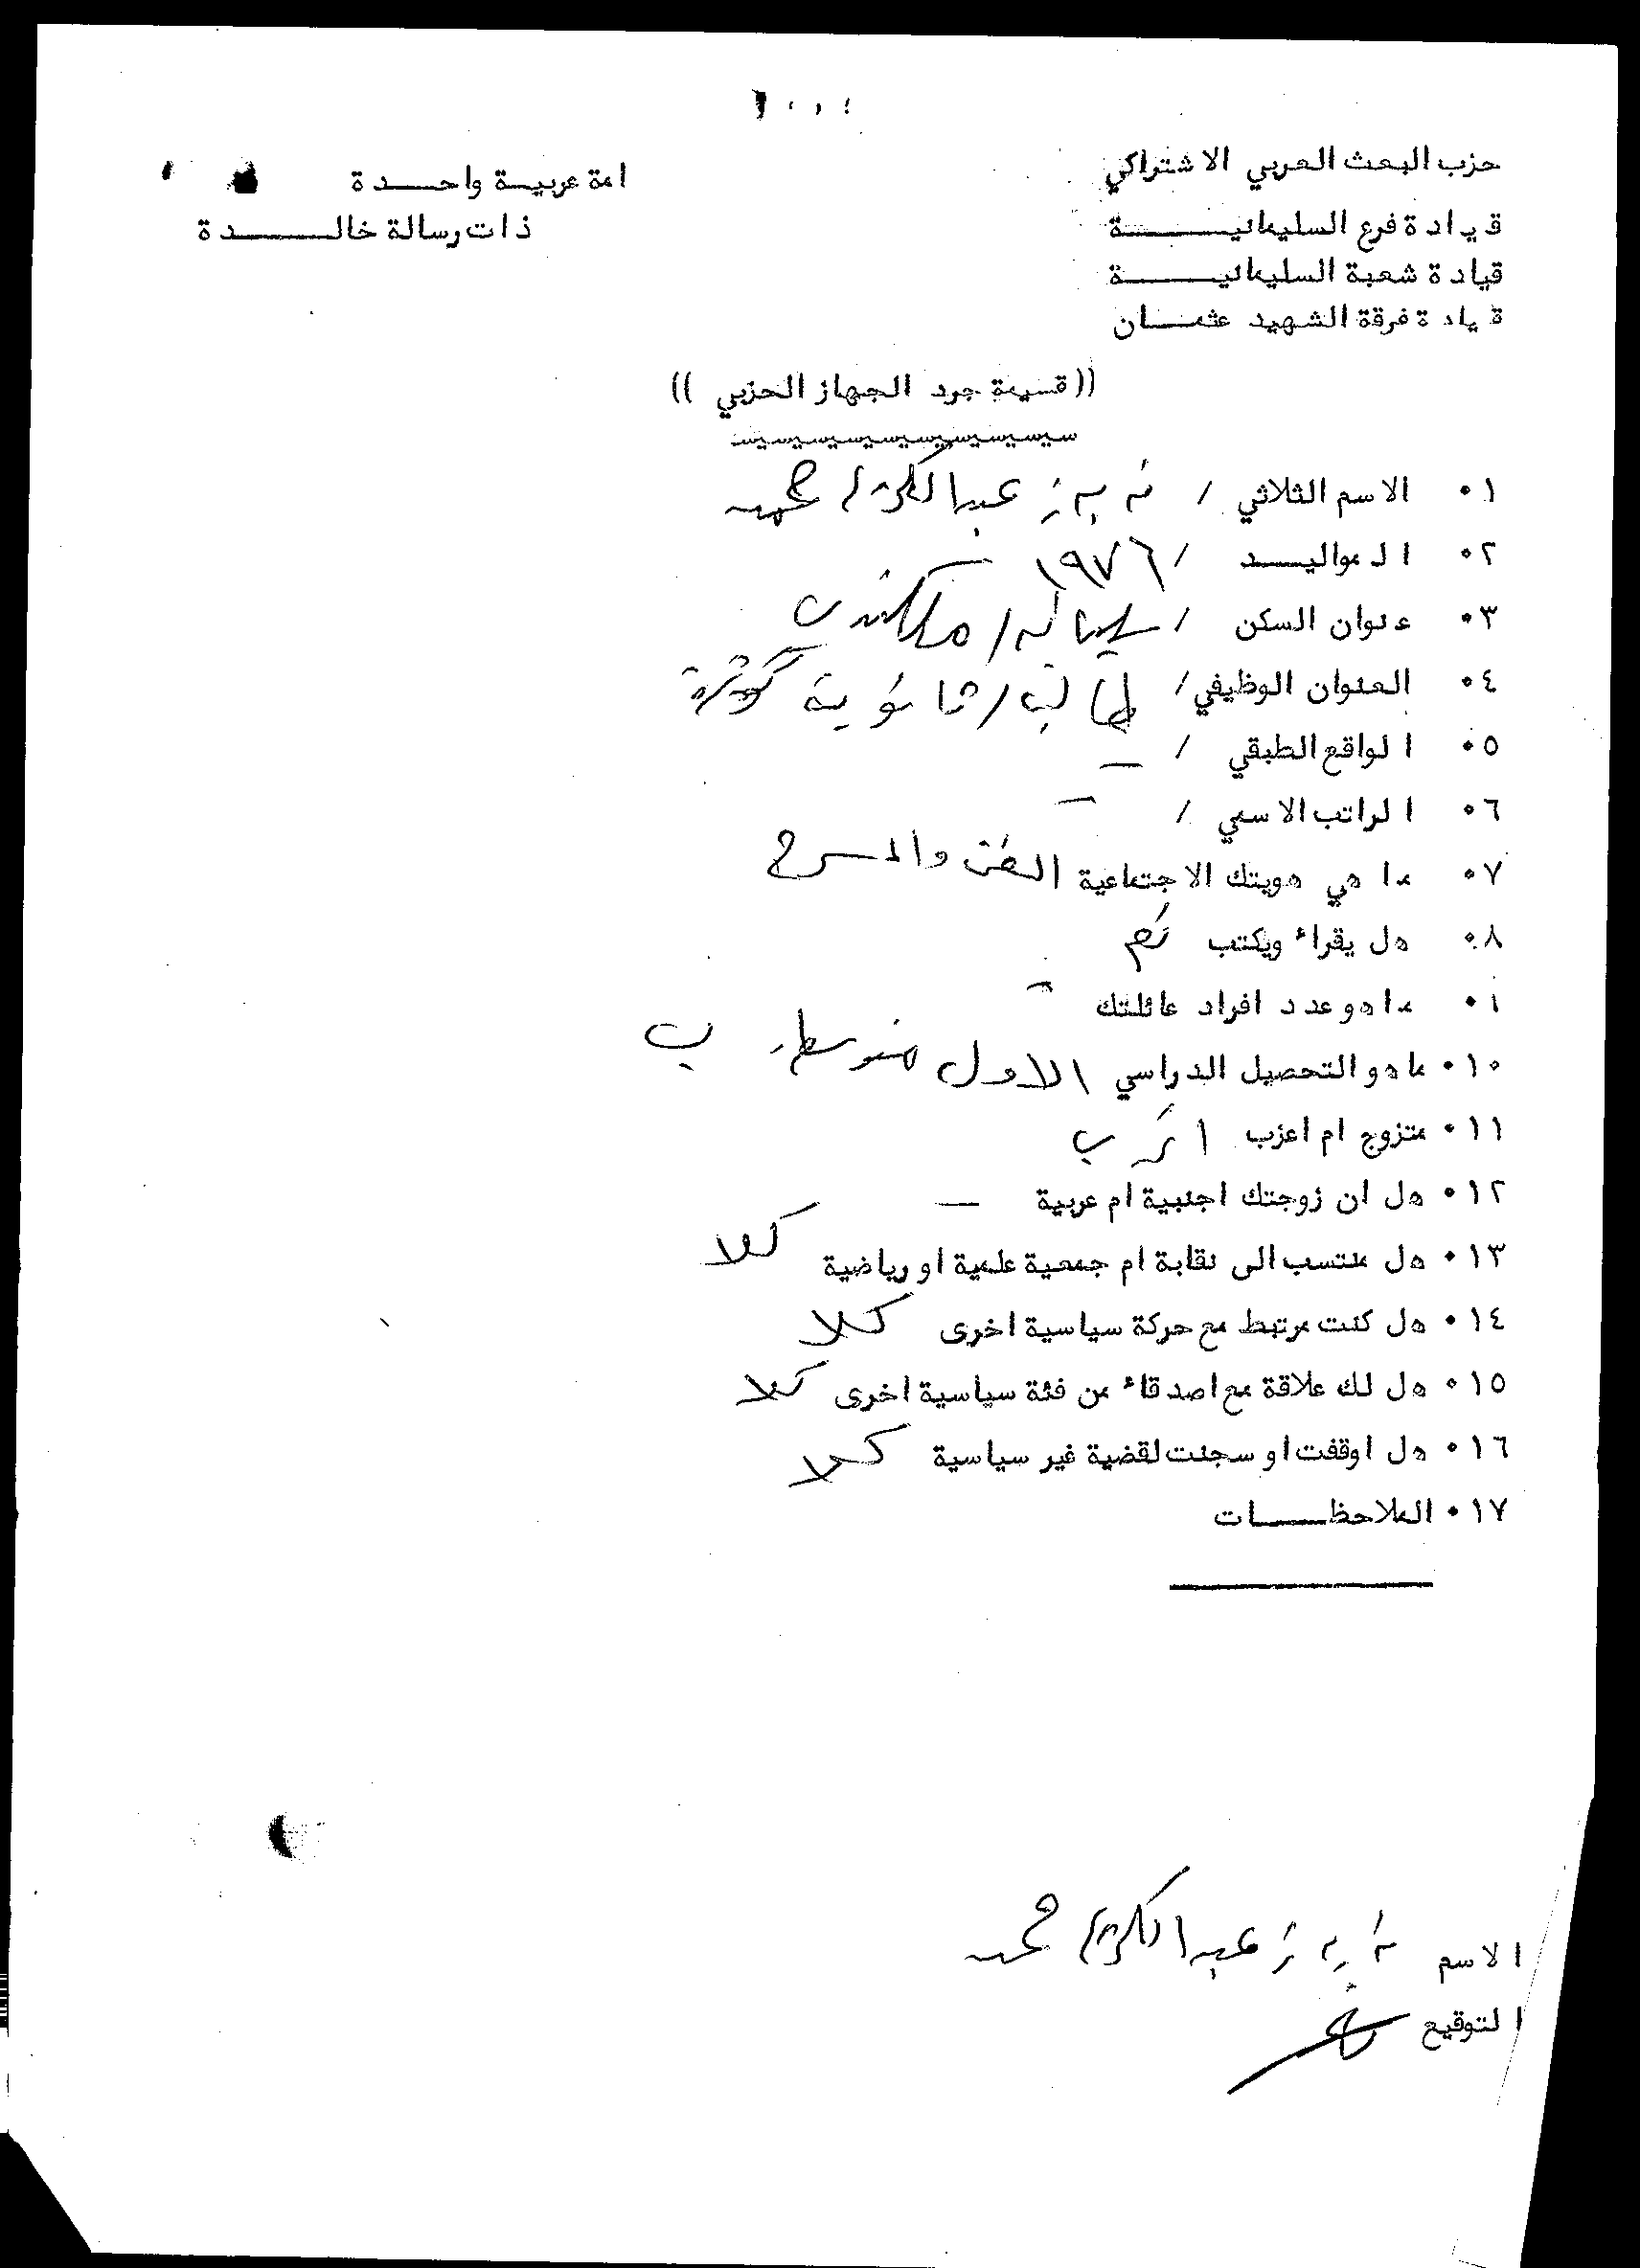 حزب البعث العربي الاشتراكي
امة عربيـة واحـــدة
قيادة فرع السليمانيـــــة
ذات رسالة خالـــــدة
قيادة شعبة السليمانيـــــة
قيادة فرقة الشهيد عثمـــان
(( قسيمة جرد الجهاز الحزبي ))
١٠ الاسم الثلاثي / عبدالكريم محمد
٢٠ المواليــــد / ١٩٧٦
٣٠ عنوان السكن / سليمانيه / ملكندي
٤٠ العنوان الوظيفي / طالب / ثانوية
٥٠ الواقع الطبقي / —
٦٠ الراتب الاسمي / —
٧٠ ما هي هويتك الاجتماعية الفن والمسرح
٨٠ هل يقراء ويكتب نعم
٠ ما هو عدد افراد عائلتك —
١٠٠ ما هو التحصيل الدراسي الاول متوسط ب
١١٠ متزوج ام اعزب اعزب
١٢٠ هل ان زوجتك اجنبية ام عربية —
١٣٠ هل منتسب الى نقابة ام جمعية علمية او رياضية كلا
١٤٠ هل كنت مرتبط مع حركة سياسية اخرى كلا
١٥٠ هل لك علاقة مع اصدقاء من فئة سياسية اخرى كلا
١٦٠ هل اوقفت او سجنت لقضية غير سياسية كلا
١٧٠ الملاحظـــــات
الاسم عبدالكريم محمد
التوقيع